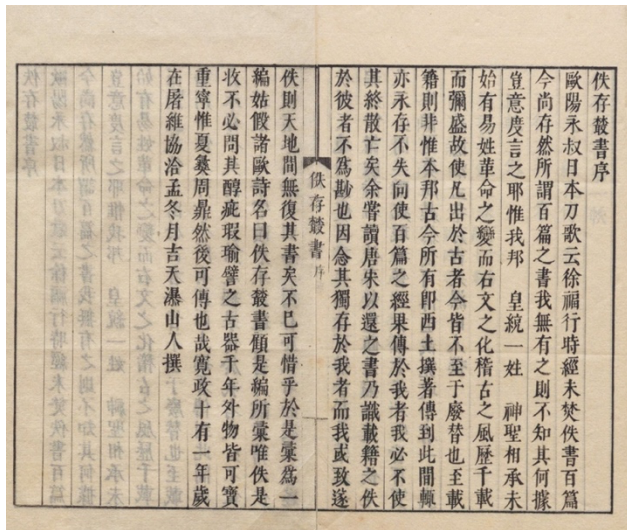 佚存叢書序
歐陽永叔日本刀歌云徐福行時經未焚佚書百篇
今尚存然所謂百篇之書我無有之則不知其何據
豈意度言之耶惟我邦　皇統一姓　神聖相承未
始有易姓革命之變而右文之化稽古之風歷千載
而彌盛故使凡出於古者今皆不至于廢替也至載
籍則非惟本邦古今所有即西土撰著傳到此間輒
亦永存不失向使百篇之經果傳於我者我必不使
其終散亡矣余嘗讀唐宋以還之書乃識載籍之佚
於彼者不爲尠也因念其獨存於我者而我或致遂
佚存叢書　序
佚則天地間無復其書矣不已可惜乎於是彙爲一
編姑假諸歐詩名曰佚存叢書傾是編所彙唯佚是
收不必問其醇疵瑕瑜譬之古器千年外物皆可寶
重寧惟夏彝周鼎然後可傳也哉寬政十有一年歲
在屠維協洽孟冬月吉天瀑山人撰